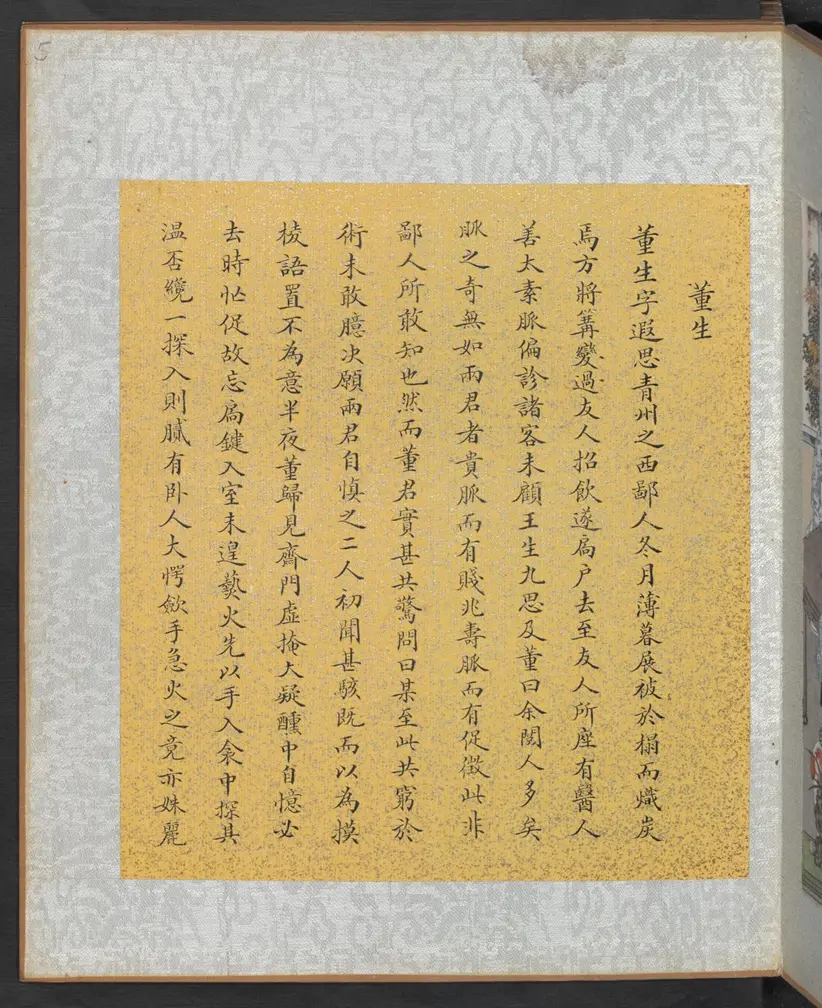 5
董生
董生字遐思青州之西鄙人冬月薄暮展被於榻而熾炭
焉方將篝變過友人招飲遂扃户去至友人所座有醫人
善太素脈偏診諸客末顧王生九思及董曰余閱人多矣
脈之奇無如兩君者貴脈而有賤兆壽脈而有促徵此非
鄙人所敢知也然而董君實甚共驚問曰某至此共窮於
術未敢臆决願兩君自慎之二人初聞甚駭既而以為摸
棱語置不為意半夜董歸見齋門虛掩大疑醺中自憶必
去時忙促故忘扃鍵入室未遑爇火先以手入衾中探其
温否纔一探入則膩有卧人大愕歛手急火之竟亦姝麗